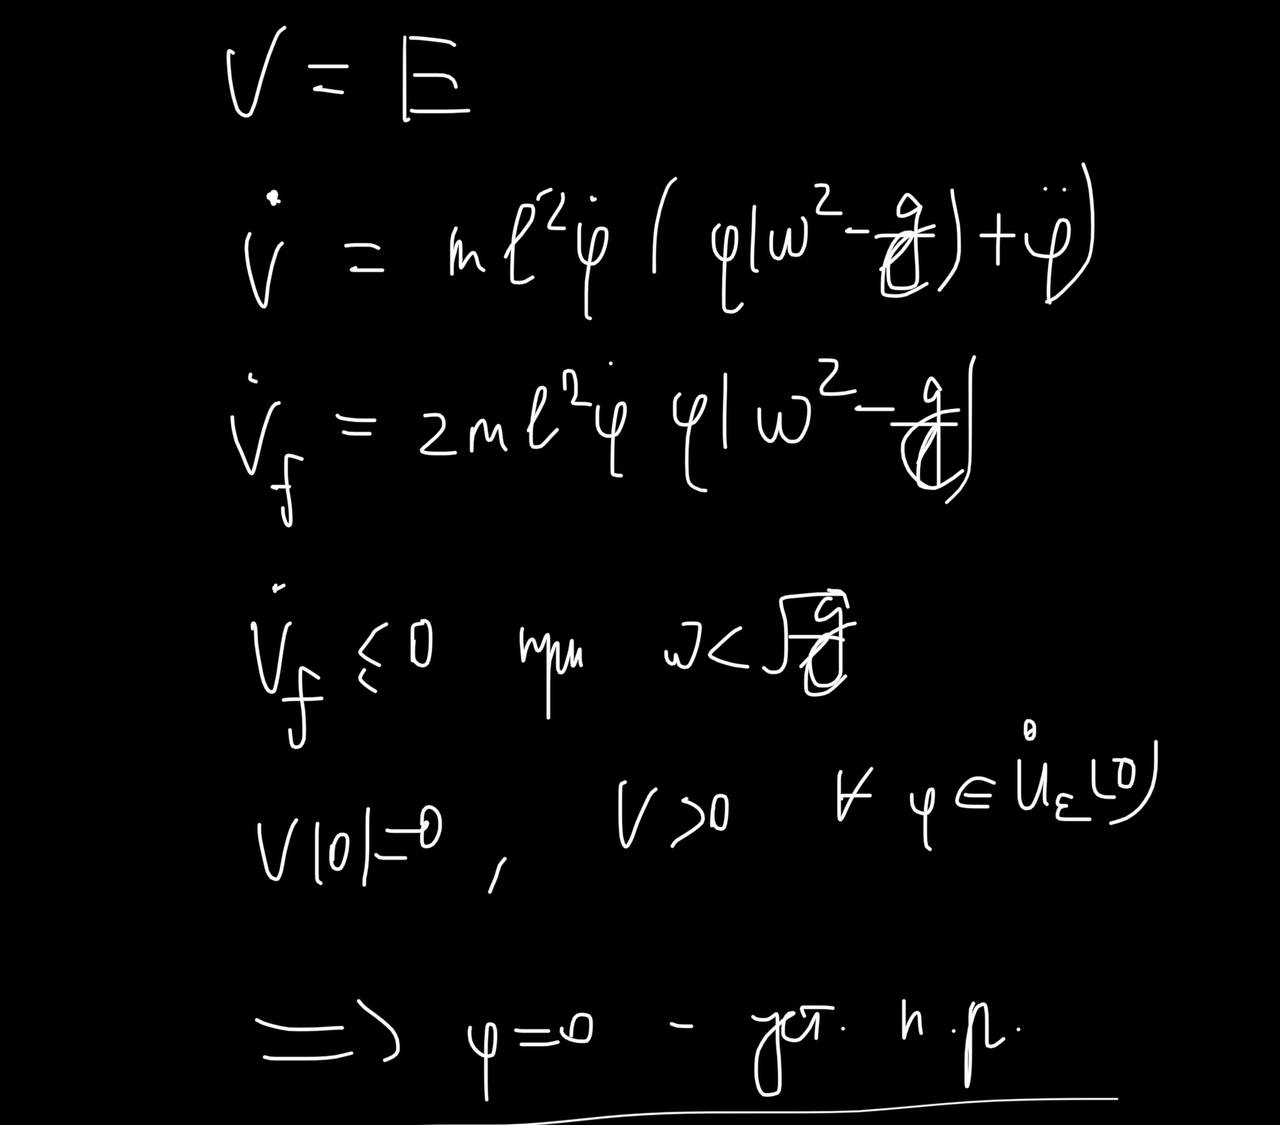 V = E
V̇ = ml²φ̇ (φ(ω² - g/l) + φ̈)
V̇_f = 2ml²φ̇ φ(ω² - g/l)
V̇_f ≤ 0 при ω < √(g/l)
V(0) = 0, V > 0 ∀ φ ∈ Ů_ε(0)
⇒ φ = 0 - уст. п.р.